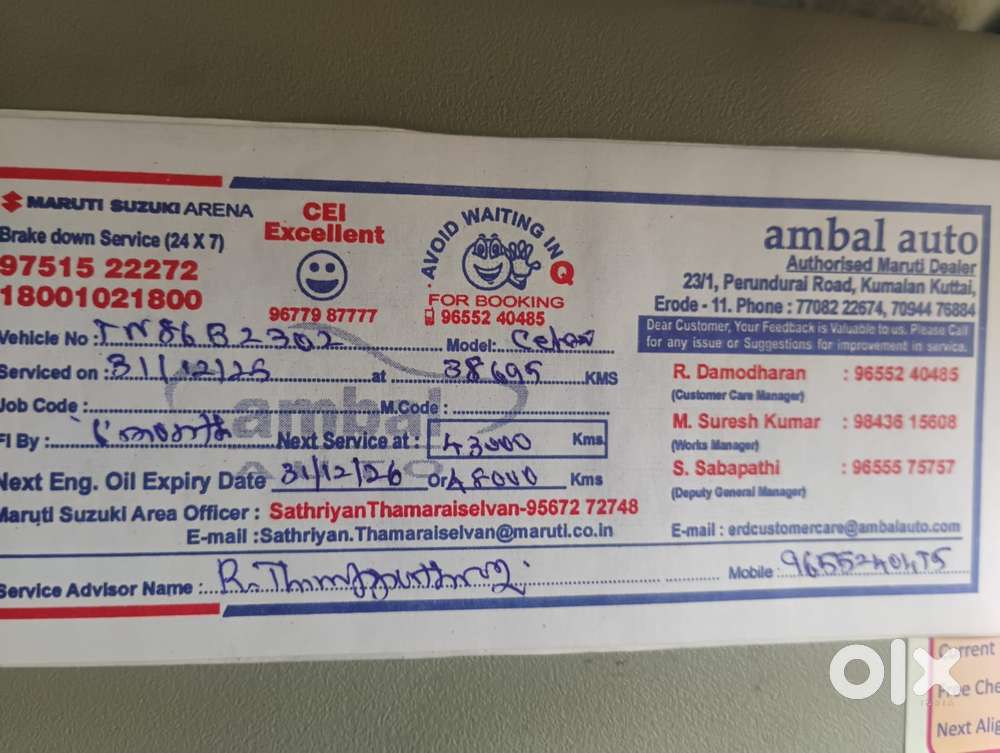 MARUTI SUZUKI ARENA
Brake down Service (24 X 7)
97515 22272
18001021800
CEI
Excellent
96779 87777
AVOID WAITING IN Q
FOR BOOKING
96552 40485
ambal auto
Authorised Maruti Dealer
23/1, Perundurai Road, Kumalan Kuttai,
Erode - 11. Phone : 77082 22674, 70944 76884
Dear Customer, Your Feedback is Valuable to us. Please Call
for any issue or Suggestions for improvement in service.
Vehicle No : TN86B2302 Model:
Serviced on : 31/12/25 at 38695 KMS
Job Code : M.Code :
FI By : Next Service at : 43000 Kms
Next Eng. Oil Expiry Date 31/12/26 Or 48000 Kms
Maruti Suzuki Area Officer : SathriyanThamaraiselvan-95672 72748
E-mail :Sathriyan.Thamaraiselvan@maruti.co.in
R. Damodharan : 96552 40485
(Customer Care Manager)
M. Suresh Kumar : 98436 15608
(Works Manager)
S. Sabapathi : 96555 75757
(Deputy General Manager)
E-mail : erdcustomercare@ambalauto.com
Service Advisor Name : Mobile :
ambal
AUTO
olx
INDIA
Current
Free Che
Next Alig